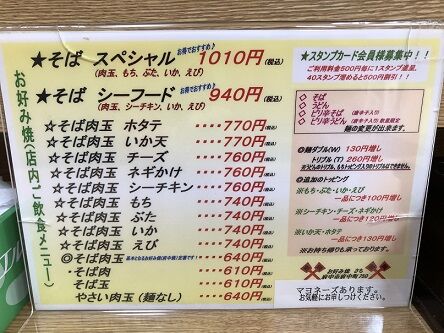 お好み焼(店内ご飲食メニュー)
お得でおすすめ♪
★そば スペシャル 1010円(税込)
(肉玉、もち、ぶた、いか、えび)
お得でおすすめ♪
★そば シーフード 940円(税込)
(肉玉、シーチキン、いか、えび)
☆そば肉玉 ホタテ ････770円(税込)
☆そば肉玉 いか天 ････770円(税込)
☆そば肉玉 チーズ ････760円(税込)
☆そば肉玉 ネギかけ ････760円(税込)
☆そば肉玉 シーチキン ････760円(税込)
☆そば肉玉 もち ････740円(税込)
☆そば肉玉 ぶた ････740円(税込)
☆そば肉玉 いか ････740円(税込)
☆そば肉玉 えび ････740円(税込)
◎そば肉玉 ････640円
・そば肉 ････610円
そば玉 ････610円
やさい肉玉(麺なし) ････640円
★スタンプカード会員様募集中!!
ご利用料金500円毎に1スタンプ進呈。
40スタンプ埋めると500円割引!!
◇ そば
◇ うどん
◇ ピリ辛そば(唐辛子入り)
◇ ピリ辛うどん(唐辛子入り)
麺の変更が出来ます。
◎麺ダブル(W) 130円増し
トリプル(T) 260円増し
◎追加のトッピング
※もち・ぶた・いか・えび
一品につき100円増し
※シーチキン・チーズ・ネギかけ
一品につき120円増し
※いか天・ホタテ
一品につき130円増し
※お持ち帰りも承っております。
お好み焼 きち
マヨネーズあります。
お気軽にお申しつけください。